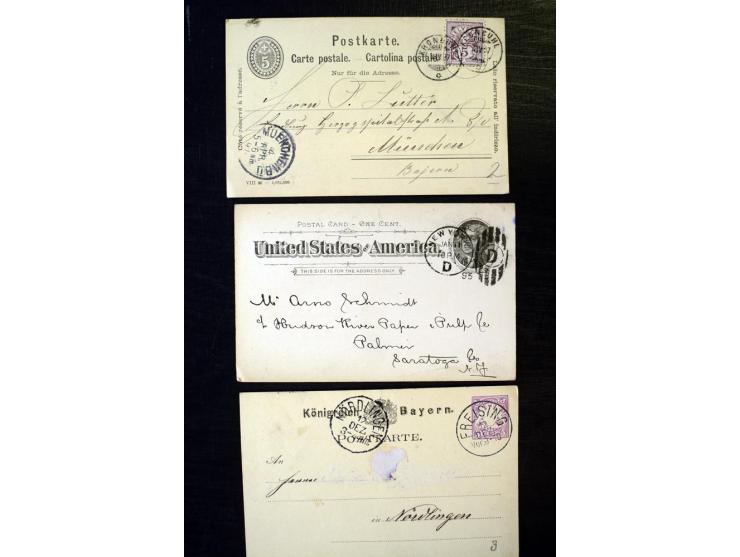 Postkarte.
Carte postale. — Cartolina postale.
Nur für die Adresse.
5
Côté réservé à l'adresse.
Lato riservato all' indirizzo.
Herrn F. Lutter
München
Bayern
2
POSTAL CARD – ONE CENT.
United States of America.
THIS SIDE IS FOR THE ADDRESS ONLY.
NEW YORK
JAN
D
95
D
Mr Arno Schmidt
c/o Hudson River Paper & Pulp Co
Palmer
Saratoga Co.
N.Y.
Königreich Bayern.
POSTKARTE.
NÖRDLINGEN
DEZ.
FREISING
An
Herrn
in Nördlingen
3